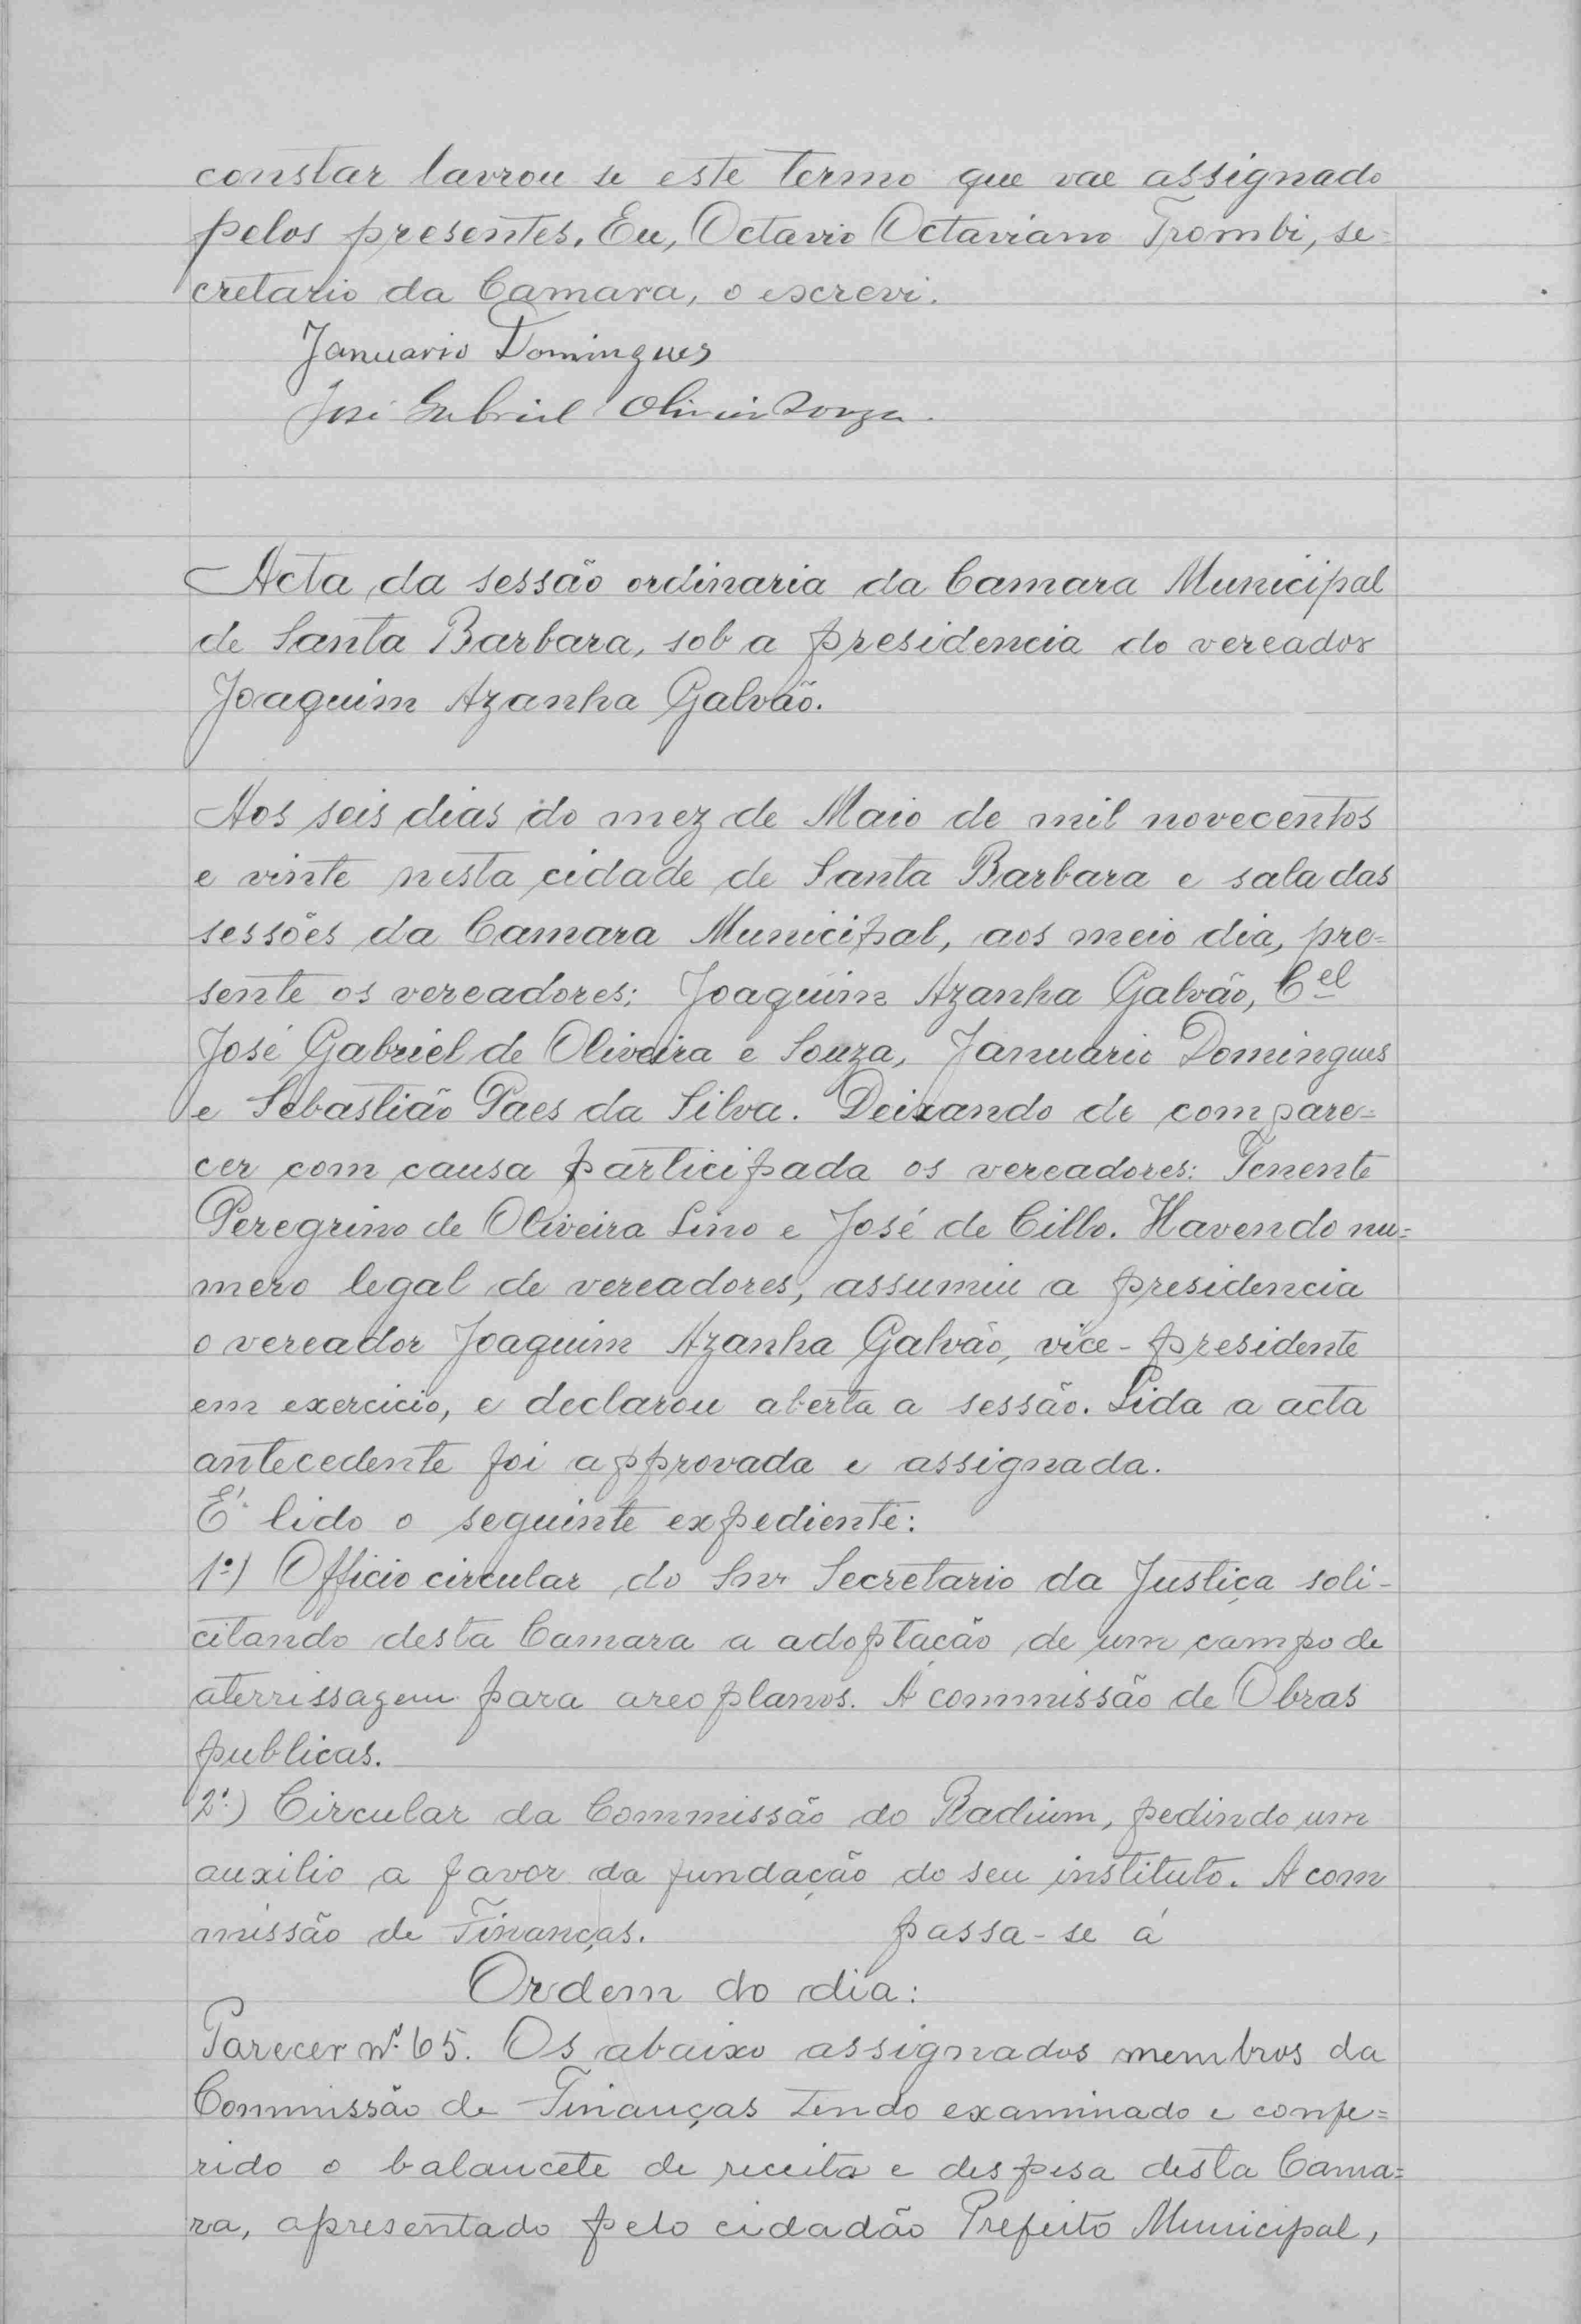 constar lavrou se este termo que vae assignado
pelos presentes. Eu, Octavio Octaviano Trombi, se=
cretario da Camara, o escrevi.
Januario Domingues
José Gabriel Olivei Souza.
Acta da sessão ordinaria da Camara Municipal
de Santa Barbara, sob a presidencia do vereador
Joaquim Azanha Galvão.
Aos seis dias do mez de Maio de mil novecentos
e vinte nesta cidade de Santa Barbara e sala das
sessões da Camara Municipal, aos meio dia, pre=
sente os vereadores: Joaquim Azanha Galvão, Cel
José Gabriel de Oliveira e Souza, Januario Domingues
e Sebastião Paes da Silva. Deixando de compare=
cer com causa participada os vereadores: Tenente
Peregrino de Oliveira Lino e José de Cillo. Havendo nu=
mero legal de vereadores, assumiu a presidencia
o vereador Joaquim Azanha Galvão, vice-presidente
em exercicio, e declarou aberta a sessão. Lida a acta
antecedente foi approvada e assignada.
É lido o seguinte expediente:
1º) Officio circular do Snr Secretario da Justiça soli-
citando desta Camara a adoptação de um campo de
aterrissagem para areoplanos. A commissão de Obras
publicas.
2º) Circular da Commissão do Radium, pedindo um
auxilio a favor da fundação do seu instituto. A com
missão de Finanças. passa-se á
Ordem do dia:
Parecer nº 65. Os abaixo assignados membros da
Commissão de Finanças tendo examinado e confe=
rido o balancete de receita e despesa desta Cama=
ra, apresentado pelo cidadão Prefeito Municipal,